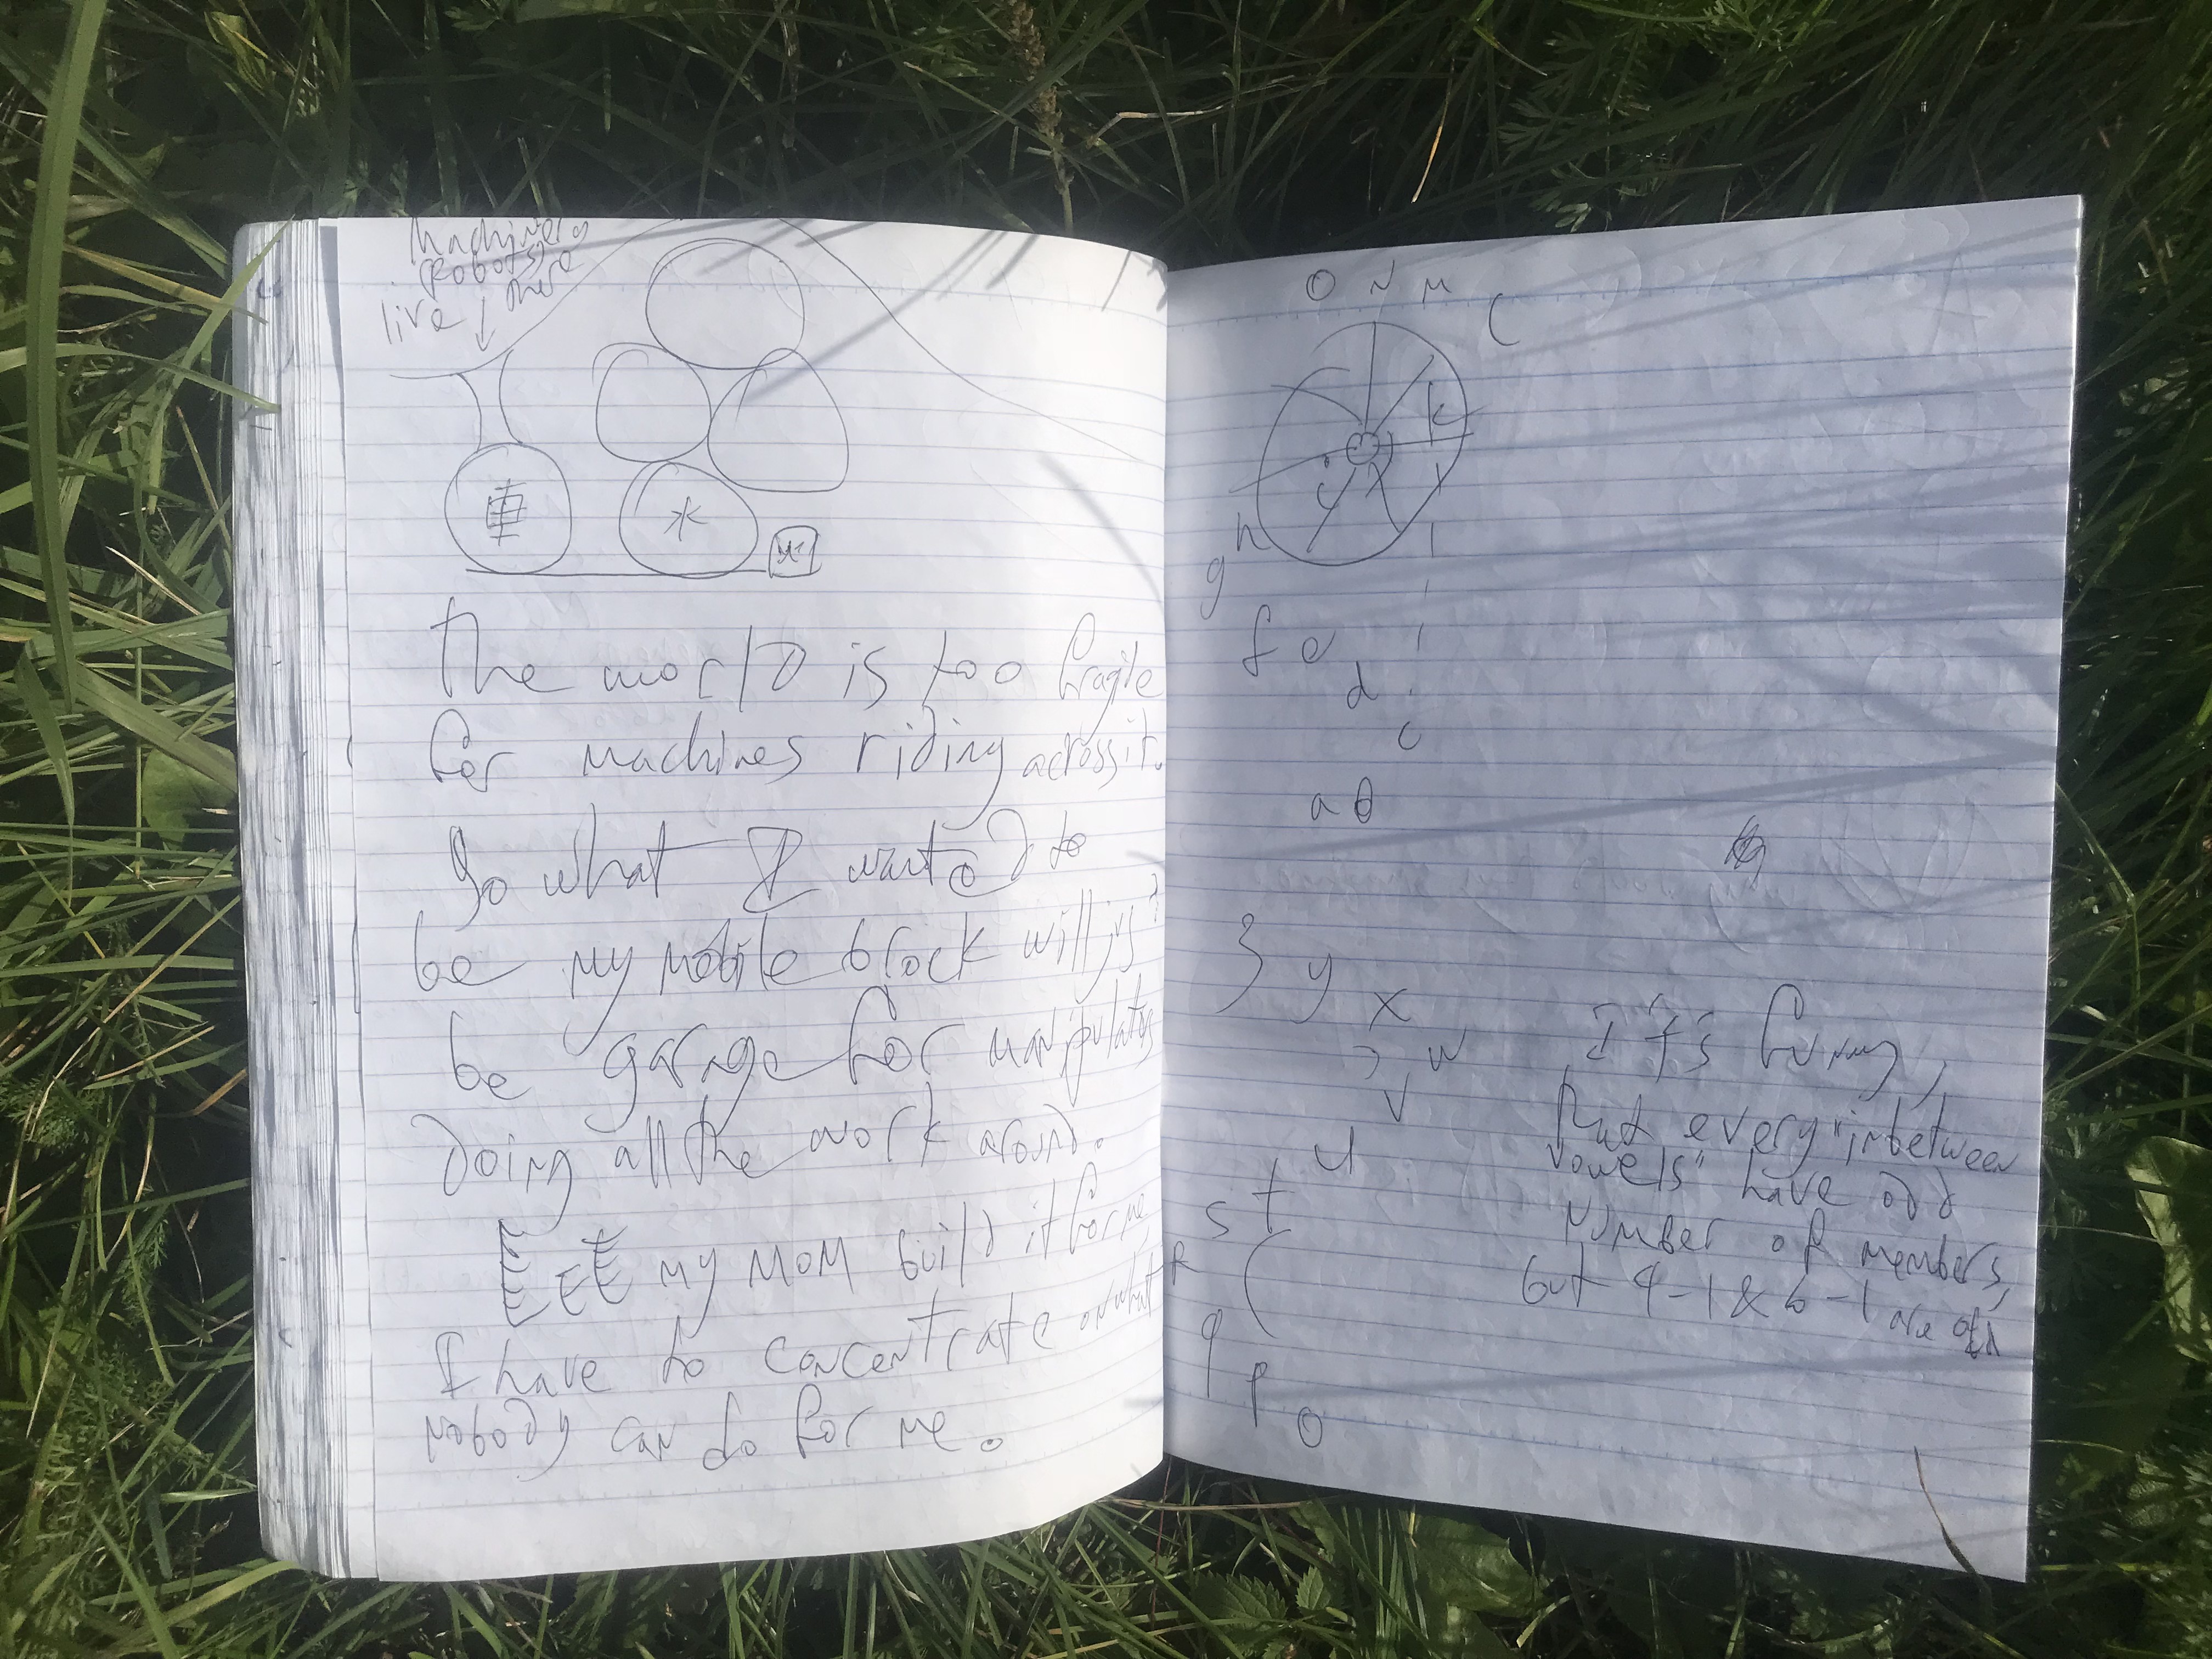 live ↓ here
車
水
The world is too fragile
for machines riding across it.
So what I wanted to
be my noble block will is?
be garage for manipulators
doing all the work around.
my MOM build it for me
I have to concentrate on what
nobody can do for me.
O N M L
h k
i j
g
f e d
c
a b
z y x
w
s t u v
r
q
p
o
It's funny
that every "inbetween
vowels" have odd
number of members,
but 4-1 & 6-1 are odd